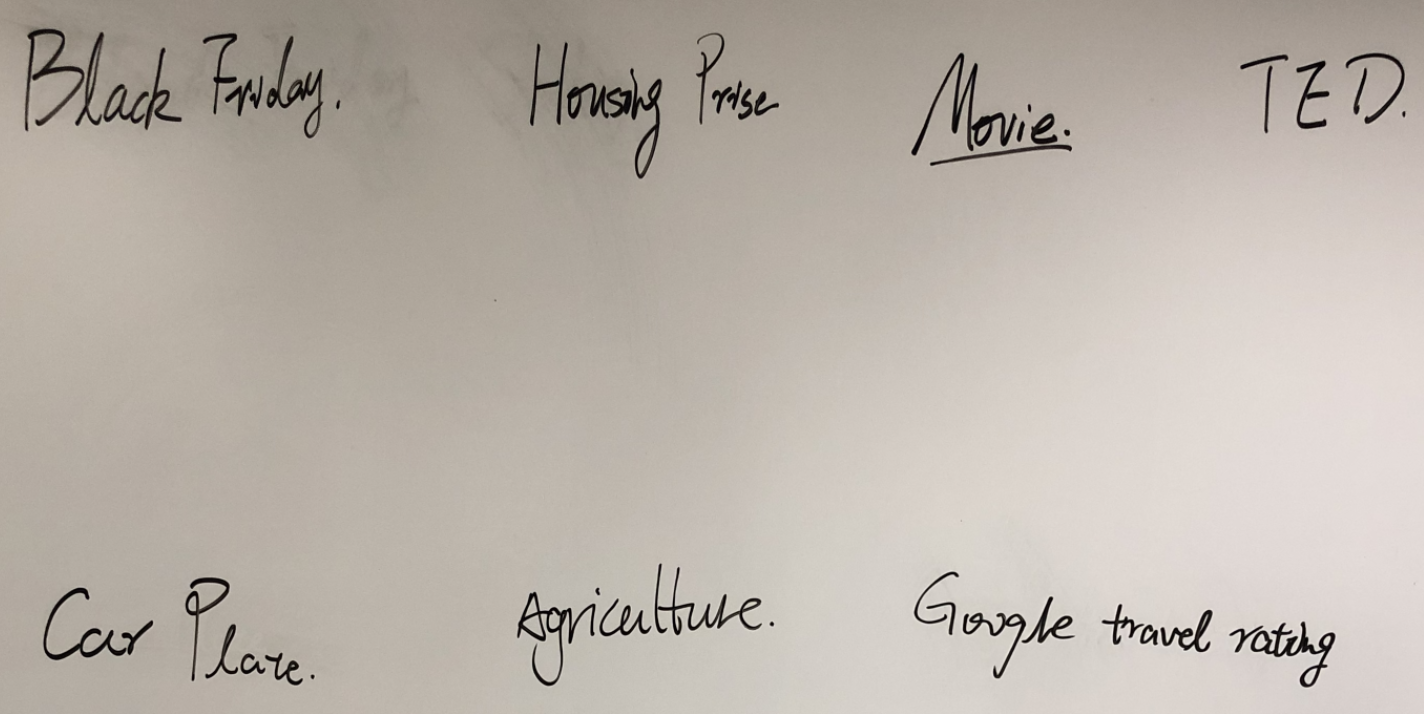 Black Friday. Housing Prise Movie. TED.
Car Plate. Agriculture. Google travel rating